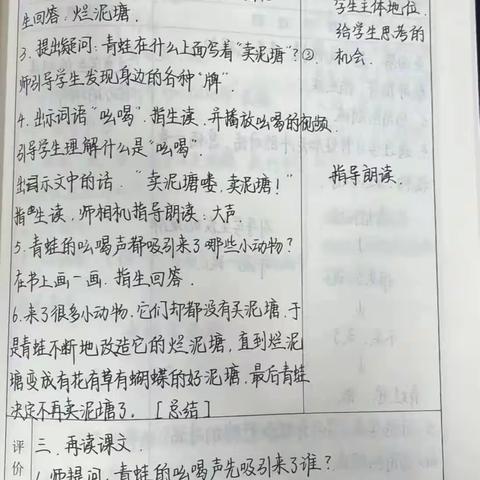 生回答. 烂泥塘.
3. 提出疑问: 青蛙在什么上面写着"卖泥塘"? ②.
师引导学生发现身边的各种"牌".
4. 出示词语"吆喝". 指生读. 并播放吆喝的视频.
引导学生理解什么是"吆喝".
出示文中的话. "卖泥塘喽, 卖泥塘!"
指生读, 师相机指导朗读: 大声.
5. 青蛙的吆喝声都吸引来了哪些小动物?
在书上画一画. 指生回答.
6. 来了很多小动物. 它们却都没有买泥塘. 于
是青蛙不断地改造它的烂泥塘, 直到烂泥
塘变成有花有草有蝴蝶的好泥塘, 最后青蛙
决定不再卖泥塘了. [总结]
三. 再读课文.
1. 师提问. 青蛙的吆喝声先吸引来了谁?
学生主体地位.
给学生思考的
机会.
指导朗读.
评
价